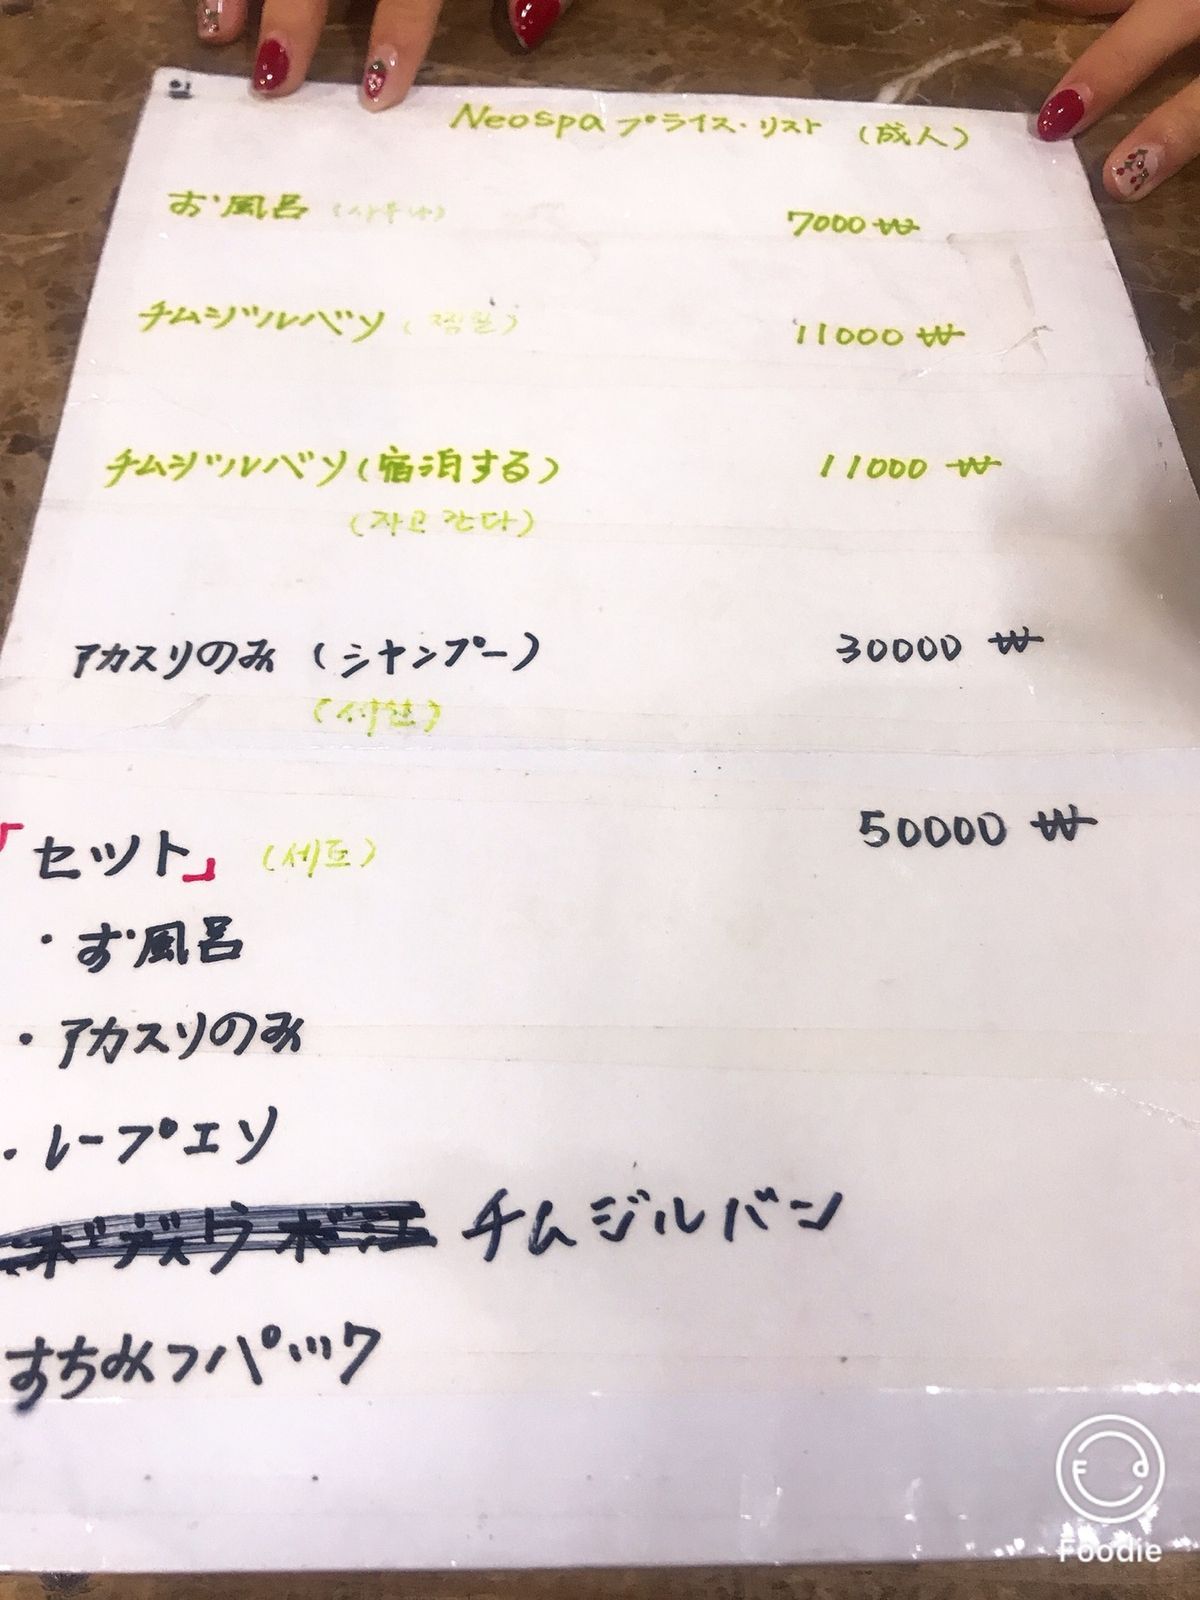 인
Neospa プライス・リスト (成人)
お風呂 (사우나) 7000 ₩
チムジルバソ (찜질) 11000 ₩
チムジルバソ (宿泊する) 11000 ₩
(자고 간다)
アカスリのみ (シャンプー) 30000 ₩
「セット」 (세트) 50000 ₩
・お風呂
・アカスリのみ
・レープエソ
チムジルバン
すちみつパック
Foodie